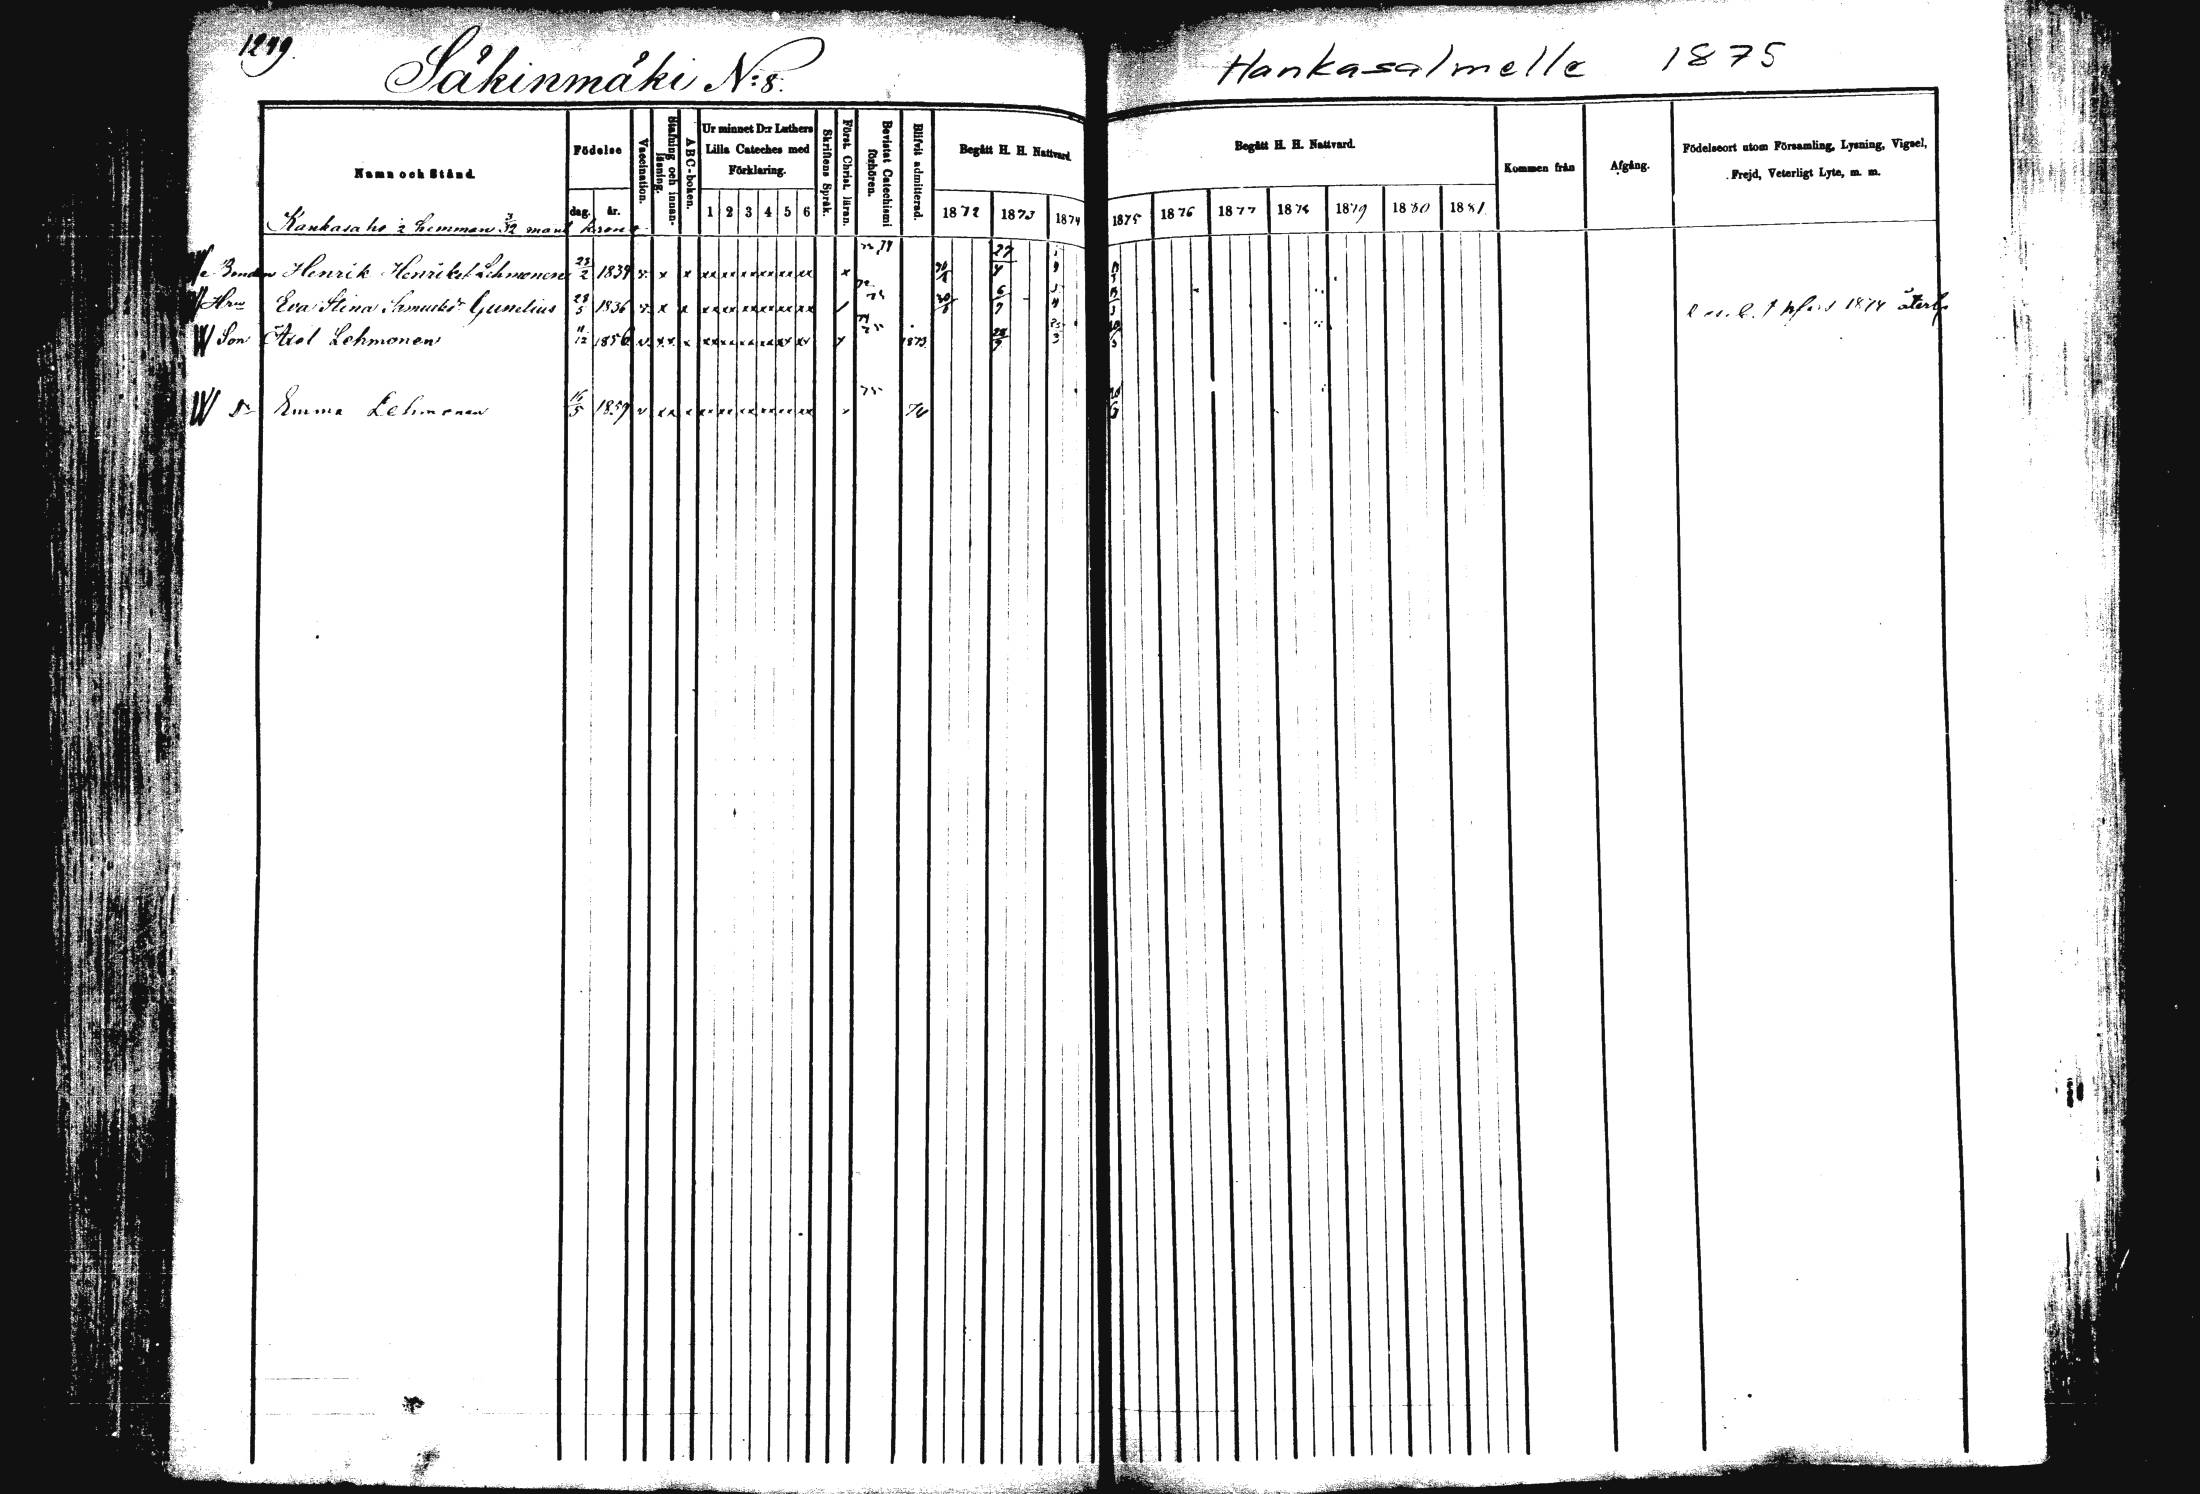 1249.
Säkinmäki N:8.
Hankasalmelle 1875
Namn och Stånd.
Födelse
dag. år.
Vaccination.
Stafning och innan-läsning.
ABC-boken.
Ur minnet D:r Luthers Lilla Cateches med Förklaring.
1 2 3 4 5 6
Skriftens Språk.
Först. Christ. läran.
Bevistat Catechismi förhören.
Blifvit admitterad.
Begått H. H. Nattvard.
1872 1873 1874
Begått H. H. Nattvard.
1875 1876 1877 1878 1879 1880 1881
Kommen från
Afgång.
Födelseort utom Församling, Lysning, Vigsel, Frejd, Veterligt Lyte, m. m.
Kankasaho ½ hemman 3/12 mant krono
Bonden Henrik Henriks Lehmonen 23/2 1834 v. x x xx xx xx xx xx xx x 27/4
Hru Eva Stina Samuelsdr Gunelius 28/5 1836 v. x x xx xx xx xx xx xx 30/6 6/7 1874 återb
Son Axel Lehmonen 11/12 1856 v. xx x xx xx xx xx xx xx 1873 28/9
Dr Emma Lehmonen 16/5 1859 v xx x xx xx xx xx xx xx 75 74